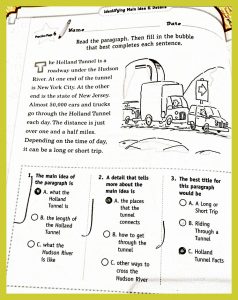 Identifying Main Idea & Details
Name
Date
Read the paragraph. Then fill in the bubble
that best completes each sentence.
The Holland Tunnel is a
roadway under the Hudson
River. At one end of the tunnel
is New York City. At the other
end is the state of New Jersey.
Almost 50,000 cars and trucks
go through the Holland Tunnel
each day. The distance is just
over one and a half miles.
Depending on the time of day,
it can be a long or short trip.
1. The main idea of
the paragraph is
A. what the
Holland
Tunnel is
B. the length of
the Holland
Tunnel
C. what the
Hudson River
is like
2. A detail that tells
more about the
main idea is
A. the places
that the
tunnel
connects
B. how to get
through the
tunnel
C. other ways to
cross the
Hudson River
3. The best title for
this paragraph
would be
A. A Long or
Short Trip
B. Riding
Through a
Tunnel
C. Holland
Tunnel Facts